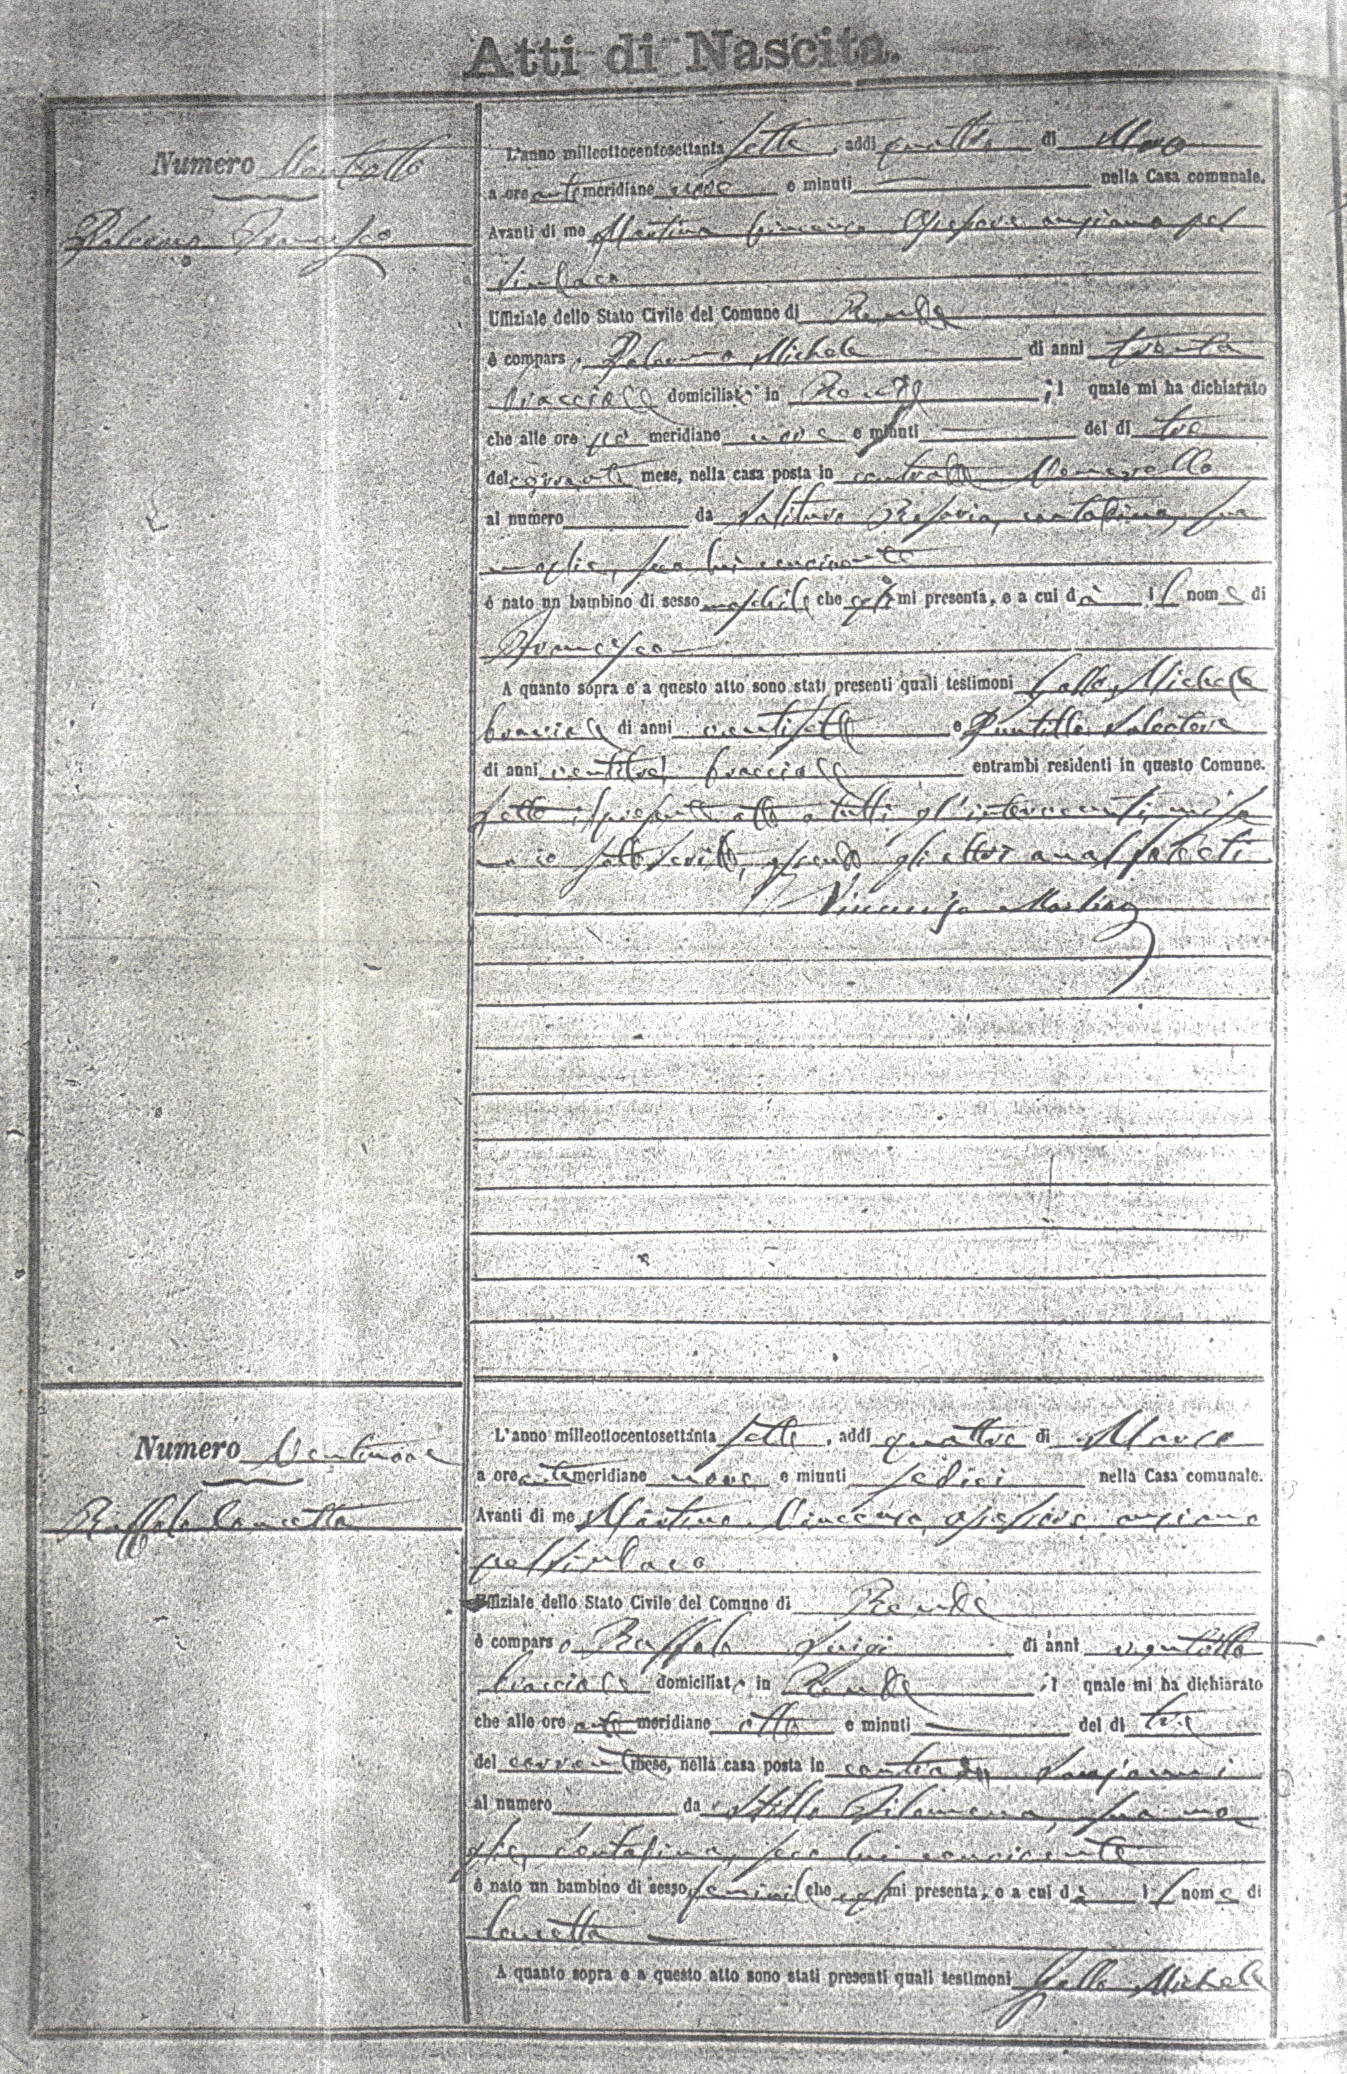 Atti di Nascita.
Numero Ventotto
Palermo Francesco
L'anno milleottocentosettanta sette, addì quattro di Marzo
a ore antemeridiane nove e minuti nella Casa comunale.
Avanti di me Martino Vincenzo Assessore anziano pel
Sindaco
Uffiziale dello Stato Civile del Comune di Rende
è comparso Palermo Michele di anni trenta
bracciale domiciliato in Rende ; il quale mi ha dichiarato
che alle ore meridiane nove e minuti del dì tre
del corrente mese, nella casa posta in contrada
al numero da Rosaria, contadina, sua
moglie, seco lui convivente
è nato un bambino di sesso maschile che egli mi presenta, e a cui dà il nome di
Francesco
A quanto sopra e a questo atto sono stati presenti quali testimoni Gallo Michele
bracciale di anni ventisette e Puntillo Salvatore
di anni ventitre, bracciale entrambi residenti in questo Comune.
Letto il presente atto a tutti gl'intervenuti, mi so
no io sottoscritto, essendo gli altri analfabeti
Vincenzo Martino
Numero Ventinove
Ruffolo Concetta
L'anno milleottocentosettanta sette, addì quattro di Marzo
a ore antemeridiane nove e minuti sedici nella Casa comunale.
Avanti di me Martino Vincenzo, assessore anziano
pel Sindaco
Uffiziale dello Stato Civile del Comune di Rende
è comparso Ruffolo Luigi di anni ventotto
bracciale domiciliato in Rende ; il quale mi ha dichiarato
che alle ore antemeridiane otto e minuti del dì tre
del corrente mese, nella casa posta in contrada
al numero da Filomena, sua mo
glie, contadina, seco lui convivente
è nato un bambino di sesso feminile che egli mi presenta, e a cui dà il nome di
Concetta
A quanto sopra e a questo atto sono stati presenti quali testimoni Gallo Michele